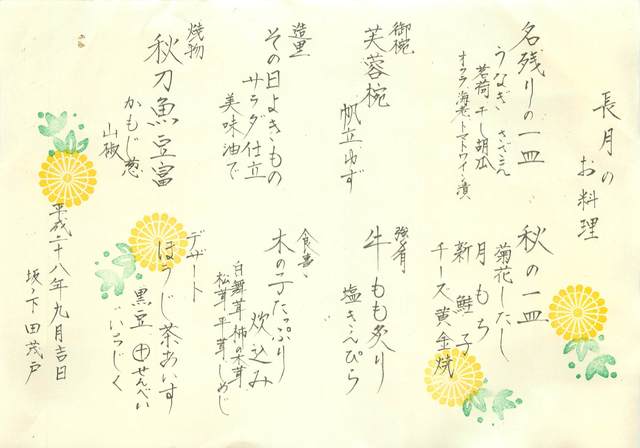 長月の
お料理
名残りの一皿
うなぎ
茗荷 干し胡瓜
オクラ 海老 トマトワイン漬
御椀
芙蓉椀
帆立 ゆず
造里
その日よきもの
サラダ仕立
美味油で
焼物
秋刀魚豆富
かもじ葱
山椒
秋の一皿
菊花したし
月もち
新 鮭子
チーズ黄金焼
強肴
牛もも炙り
塩きんぴら
食事
木の子たっぷり
炊込み
白舞茸 柿の木茸
松茸 平茸 しめじ
デザート
ほうじ茶あいす
黒豆 ㊉せんべい
いちじく
平成二十八年九月吉日
坂ノ下 田茂戸